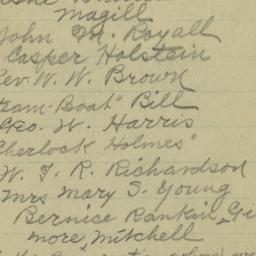 Magill
John M. Royall
Casper Holstein
Rev. W. W. Brown
"Steam-Boat" Bill
Geo. W. Harris
"Sherlock Holmes"
W. T. R. Richardson
Mrs Mary S. Young
Bernice Rankin, Gi
more, Mitchell